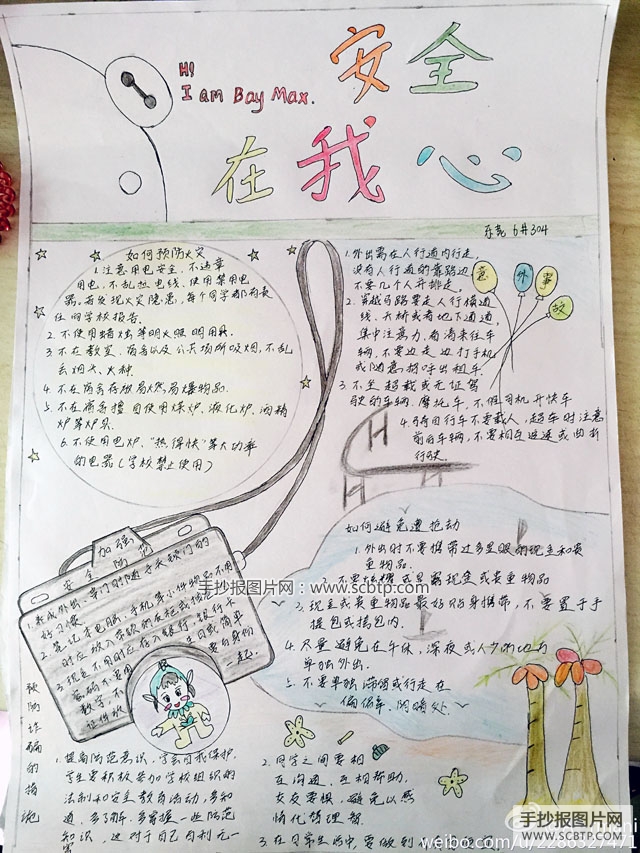 Hi
I am Bay Max.
安全
在我心
6井304
如何预防火灾
1.注意用电安全,不违章
用电,不乱拉电线,使用禁用电
器。若发现火灾隐患,每个同学都有责
任向学校报告。
2.不使用蜡烛等明火照明用具。
3.不在教室、宿舍以及公共场所吸烟,不乱
丢烟头、火种。
4.不在宿舍存放易燃易爆物品。
5.不在宿舍擅自使用煤炉、液化炉、酒精
炉等炉具。
6.不使用电炉、"热得快"等大功率
的电器(学校禁止使用)
1.外出需在人行道内行走,
没有人行道的靠路边
不要几个人并排走。
2.穿越马路要走人行横道
线、天桥或者地下通道,
集中注意力,看清来往车
辆,不要边走边打手机
或随意招呼出租车。
3.不坐超载或无证驾
驶的车辆、摩托车,不催司机开快车
4.骑自行车不要载人,超车时注意
前后车辆,不要相互追逐或曲折
行驶
意外事故
加强
安全防范
如何避免遭抢劫
1.外出时不要携带过多显眼的现金和贵
重物品。
2.不要炫耀或显露现金或贵重物品
3.现金或贵重物品最好贴身携带,不要置于手
提包或挎包内。
4.尽量避免在午休、深夜或人少
单独外出。
5.不要单独滞留或行走在
偏僻、阴暗处。
手抄报图片网:www.scbtp.com
预防诈骗的措施
1.提高防范意识,学会自我保护。
学生要积极参加学校组织的
法制和安全教育活动,多知
道、多了解、多掌握一些防范
知识,这对于自己有利无一
害
2.同学之间要相
互沟通、互相帮助。
交友要慎,避免以感
情代替理智。
3.在日常生活中,要做到
weibo.com/u/2286327471
手抄报图片网
WWW.SCBTP.COM